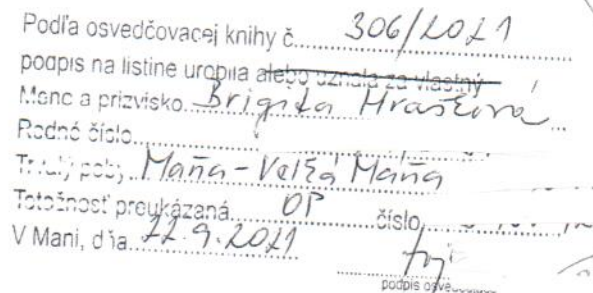 Podľa osvedčovacej knihy č. 306/2021
podpis na listine urobila alebo uznala za vlastný
Meno a prizvisko. Brigita
Rodné číslo
Trvalý pobyt Maňa - Veľká Maňa
Totožnosť preukázaná OP číslo
V Mani, dňa 22.9.2021
podpis